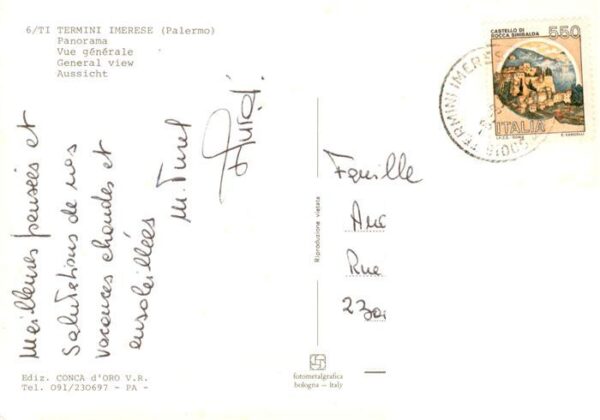 6/TI TERMINI IMERESE (Palermo)
Panorama
Vue générale
General view
Aussicht
Meilleures pensées et
Salutations de nos
vacances chaudes et
ensoleillées
M. Turel
CASTELLO DI
ROCCA SINIBALDA
550
ITALIA
TERMINI IMERESE
Famille
Rue
Riproduzione vietata
fotometalgrafica
bologna - italy
Ediz. CONCA d'ORO V.R.
Tel. 091/230697 - PA -